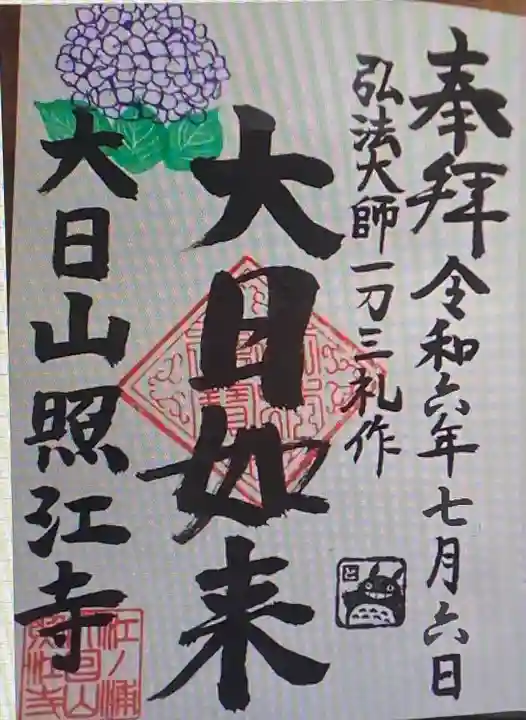 奉拝 令和六年七月六日
弘法大師一刀三礼作
大日如来
大日山照江寺
と
江ノ浦
大日山
照江寺